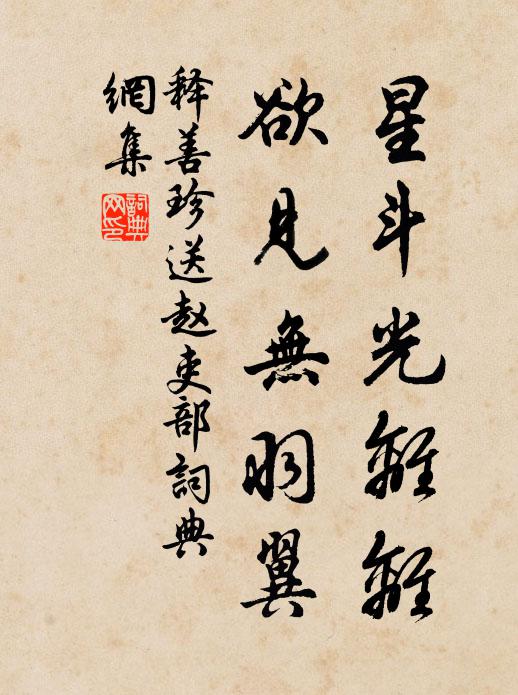 星斗光離離
欲見無羽翼
释善珍送赵吏部詞典
網集
詞典
网印